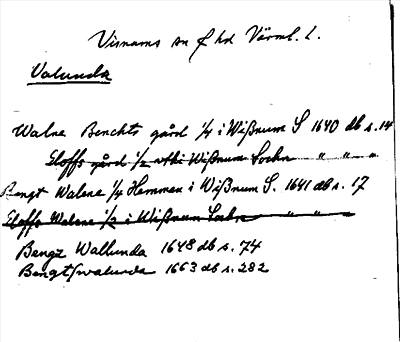 Visnums sn f hd Värml. l.
Valunda
Walne Benchts gård 1/4 i Wißnum S 1640 db s. 14
Eloffs gård 1/2 i Wißnum Sockn " " "
Bengt Walene 1/4 Hemman i Wißnum S. 1641 db s. 17
Eloffs Walene 1/2 i Wißnum Sockn " "
Bengz Wallunda 1648 db s. 74
Bengt Swalunda 1663 db s. 282